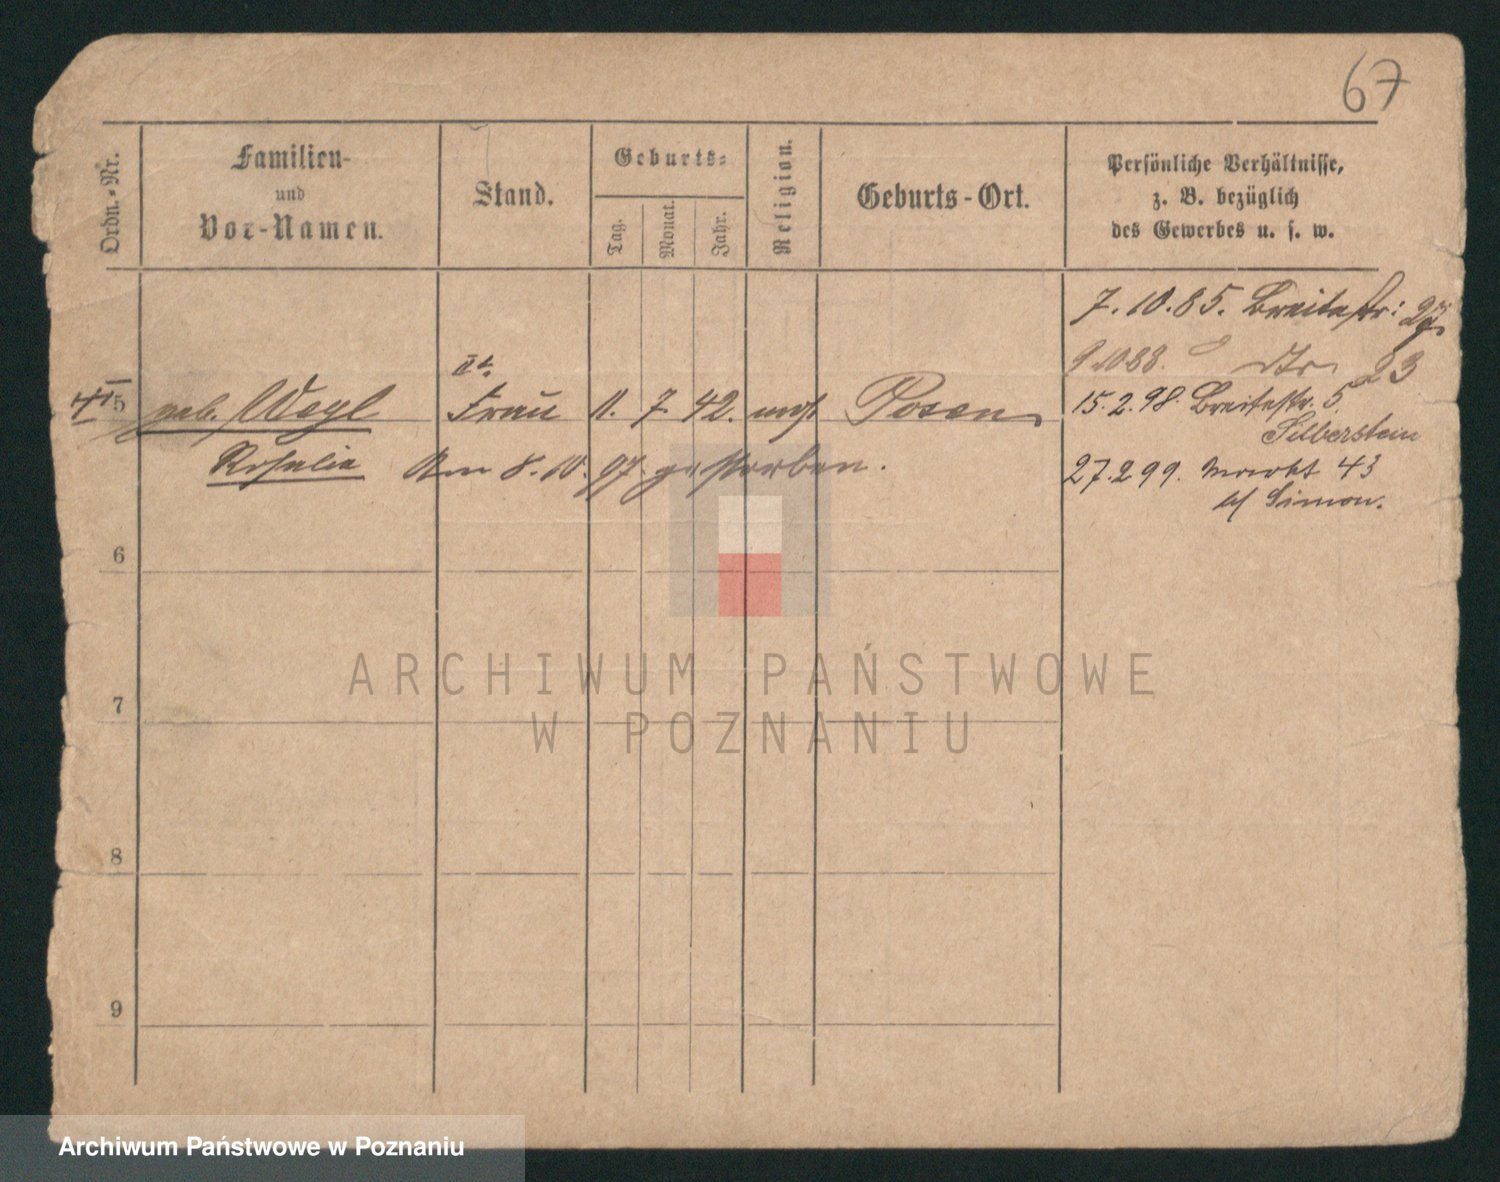 67
Ordn.-Nr.
Familien-
und
Vor-Namen.
Stand.
Geburts-
Tag.
Monat.
Jahr.
Religion.
Geburts-Ort.
Persönliche Verhältnisse,
z. B. bezüglich
des Gewerbes u. s. w.
7.10.85. Breitestr:
9.10.88. 23
IIt.
5 geb. Wegl Frau 11. 7. 42. mos Posen 15.2.98. Breitestr. 5.
Silberstein
Rosalie Am 8.10.97. gestorben. 27.2.99. Markt 43
b/ Simon.
6
7
8
9
ARCHIWUM PAŃSTWOWE
W POZNANIU
Archiwum Państwowe w Poznaniu